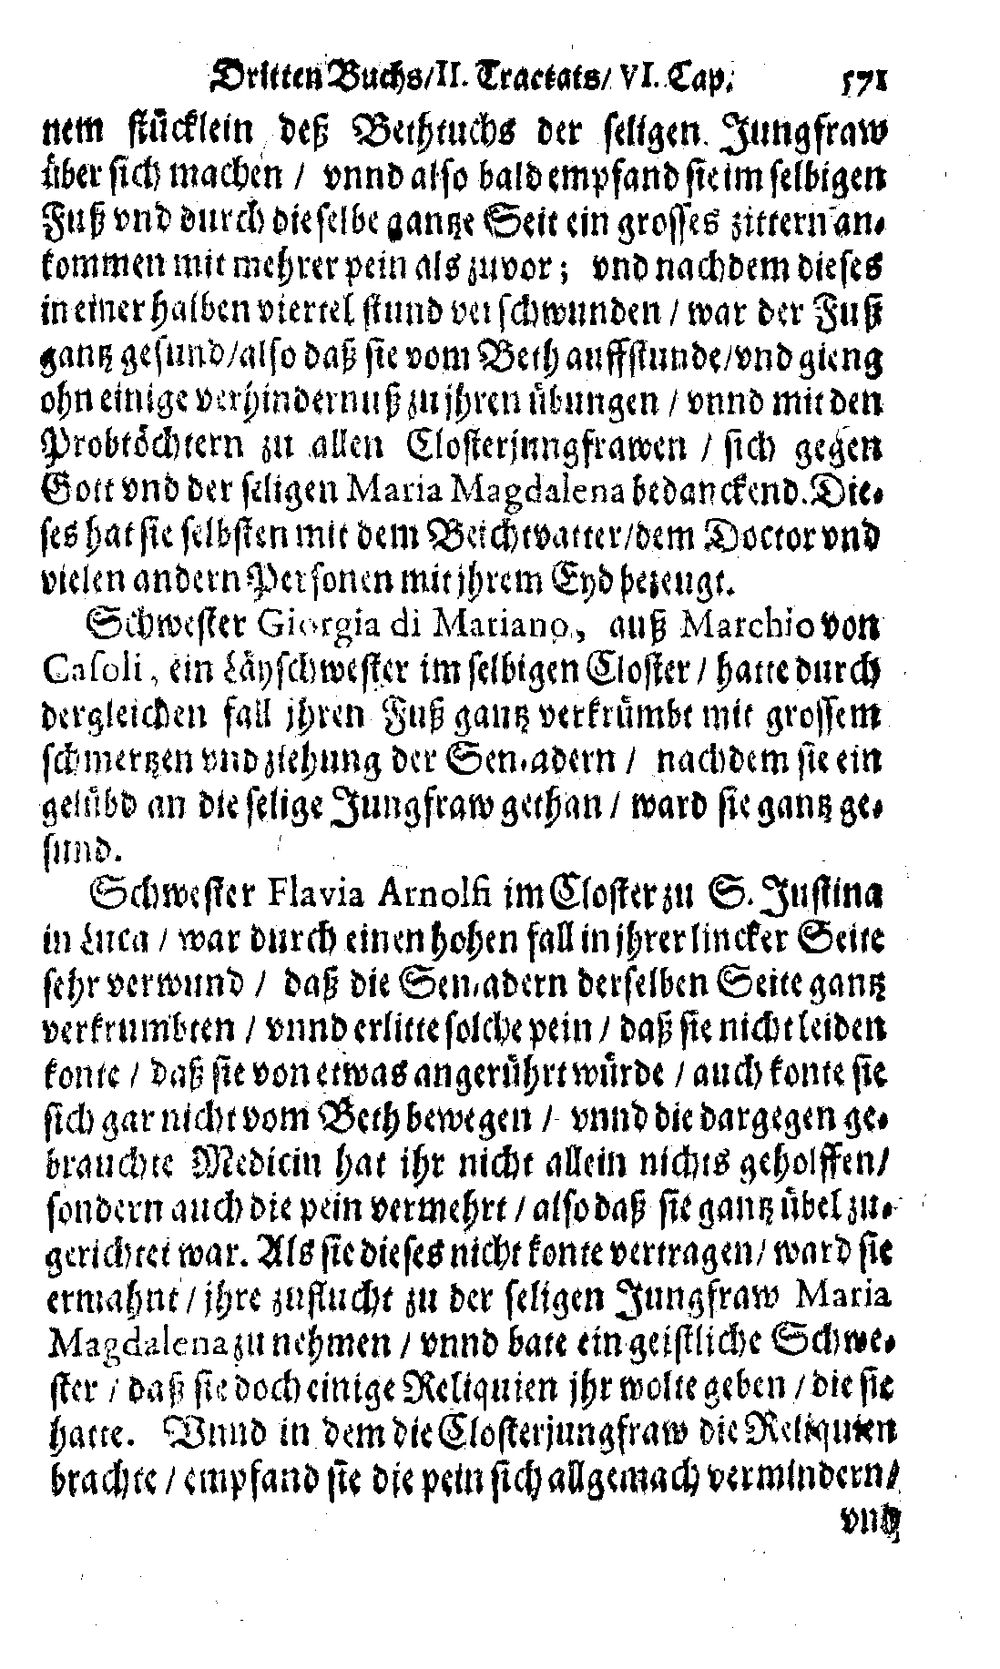 Dritten Buchs/ II. Tractats/ VI. Cap. 571
nem stücklein deß Bethtuchs der seligen Jungfraw
über sich machen / vnnd also bald empfand sie im selbigen
Fuß vnd durch dieselbe gantze Seit ein grosses zittern an-
kommen mit mehrer pein als zuvor; vnd nachdem dieses
in einer halben viertel stund verschwunden / war der Fuß
gantz gesund/also daß sie vom Beth auffstunde/vnd gieng
ohn einige verhindernuß zu jhren übungen / vnnd mit den
Probtöchtern zu allen Closterjungfrawen / sich gegen
Gott vnd der seligen Maria Magdalena bedanckend. Die-
ses hat sie selbsten mit dem Beichtvatter/dem Doctor vnd
vielen andern Personen mit jhrem Eyd bezeugt.
Schwester Giorgia di Mariano, auß Marchio von
Casoli, ein Läyschwester im selbigen Closter / hatte durch
dergleichen fall jhren Fuß gantz verkrümbt mit grossem
schmertzen vnd ziehung der Sen-adern / nachdem sie ein
gelübd an die selige Jungfraw gethan / ward sie gantz ge-
sund.
Schwester Flavia Arnolfi im Closter zu S. Justina
in Luca / war durch einen hohen fall in jhrer lincker Seite
sehr verwund / daß die Sen-adern derselben Seite gantz
verkrumbten / vnnd erlitte solche pein / daß sie nicht leiden
konte / daß sie von etwas angerührt würde / auch konte sie
sich gar nicht vom Beth bewegen / vnnd die dargegen ge-
brauchte Medicin hat ihr nicht allein nichts geholffen/
sondern auch die pein vermehrt / also daß sie gantz übel zu-
gerichtet war. Als sie dieses nicht konte vertragen/ ward sie
ermahnt / jhre zuflucht zu der seligen Jungfraw Maria
Magdalena zu nehmen / vnnd bate ein geistliche Schwe-
ster / daß sie doch einige Reliquien jhr wolte geben / die sie
hatte. Vnnd in dem die Closterjungfraw die Reliquien
brachte / empfand sie die pein sich allgemach vermindern/
vnd